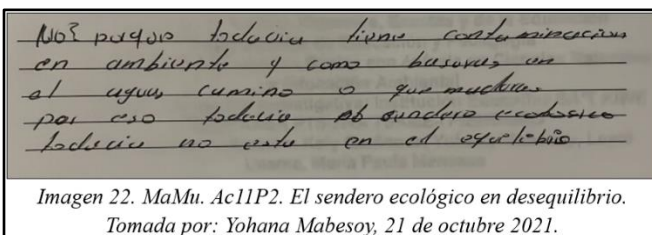 No? porque todavia tiene contaminacion
en ambiente y como basuras en
el aguas camino o que maduras
por eso todavia el sendero ecologico
todavia no esta en el equilibrio
Imagen 22. MaMu. Ac11P2. El sendero ecológico en desequilibrio.
Tomada por: Yohana Mabesoy, 21 de octubre 2021.